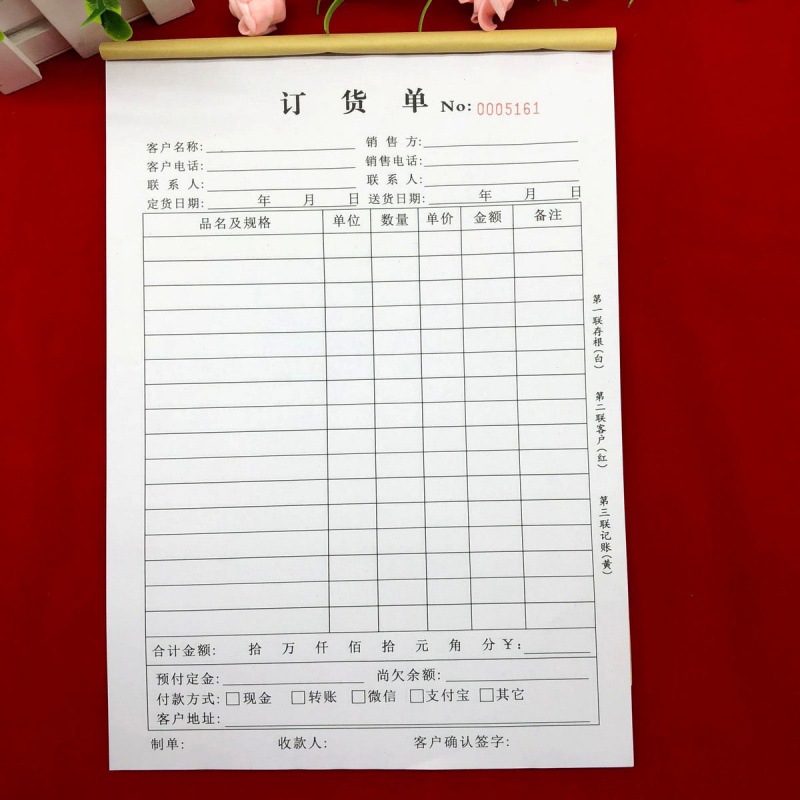 订 货 单 No: 0005161
客户名称: 销 售 方:
客户电话: 销售电话:
联 系 人: 联 系 人:
定货日期: 年 月 日 送货日期: 年 月 日
品名及规格 单位 数量 单价 金额 备注
第一联存根(白)
第二联客户(红)
第三联记账(黄)
合计金额: 拾 万 仟 佰 拾 元 角 分 ¥:
预付定金: 尚欠余额:
付款方式: □现金 □转账 □微信 □支付宝 □其它
客户地址:
制单: 收款人: 客户确认签字: